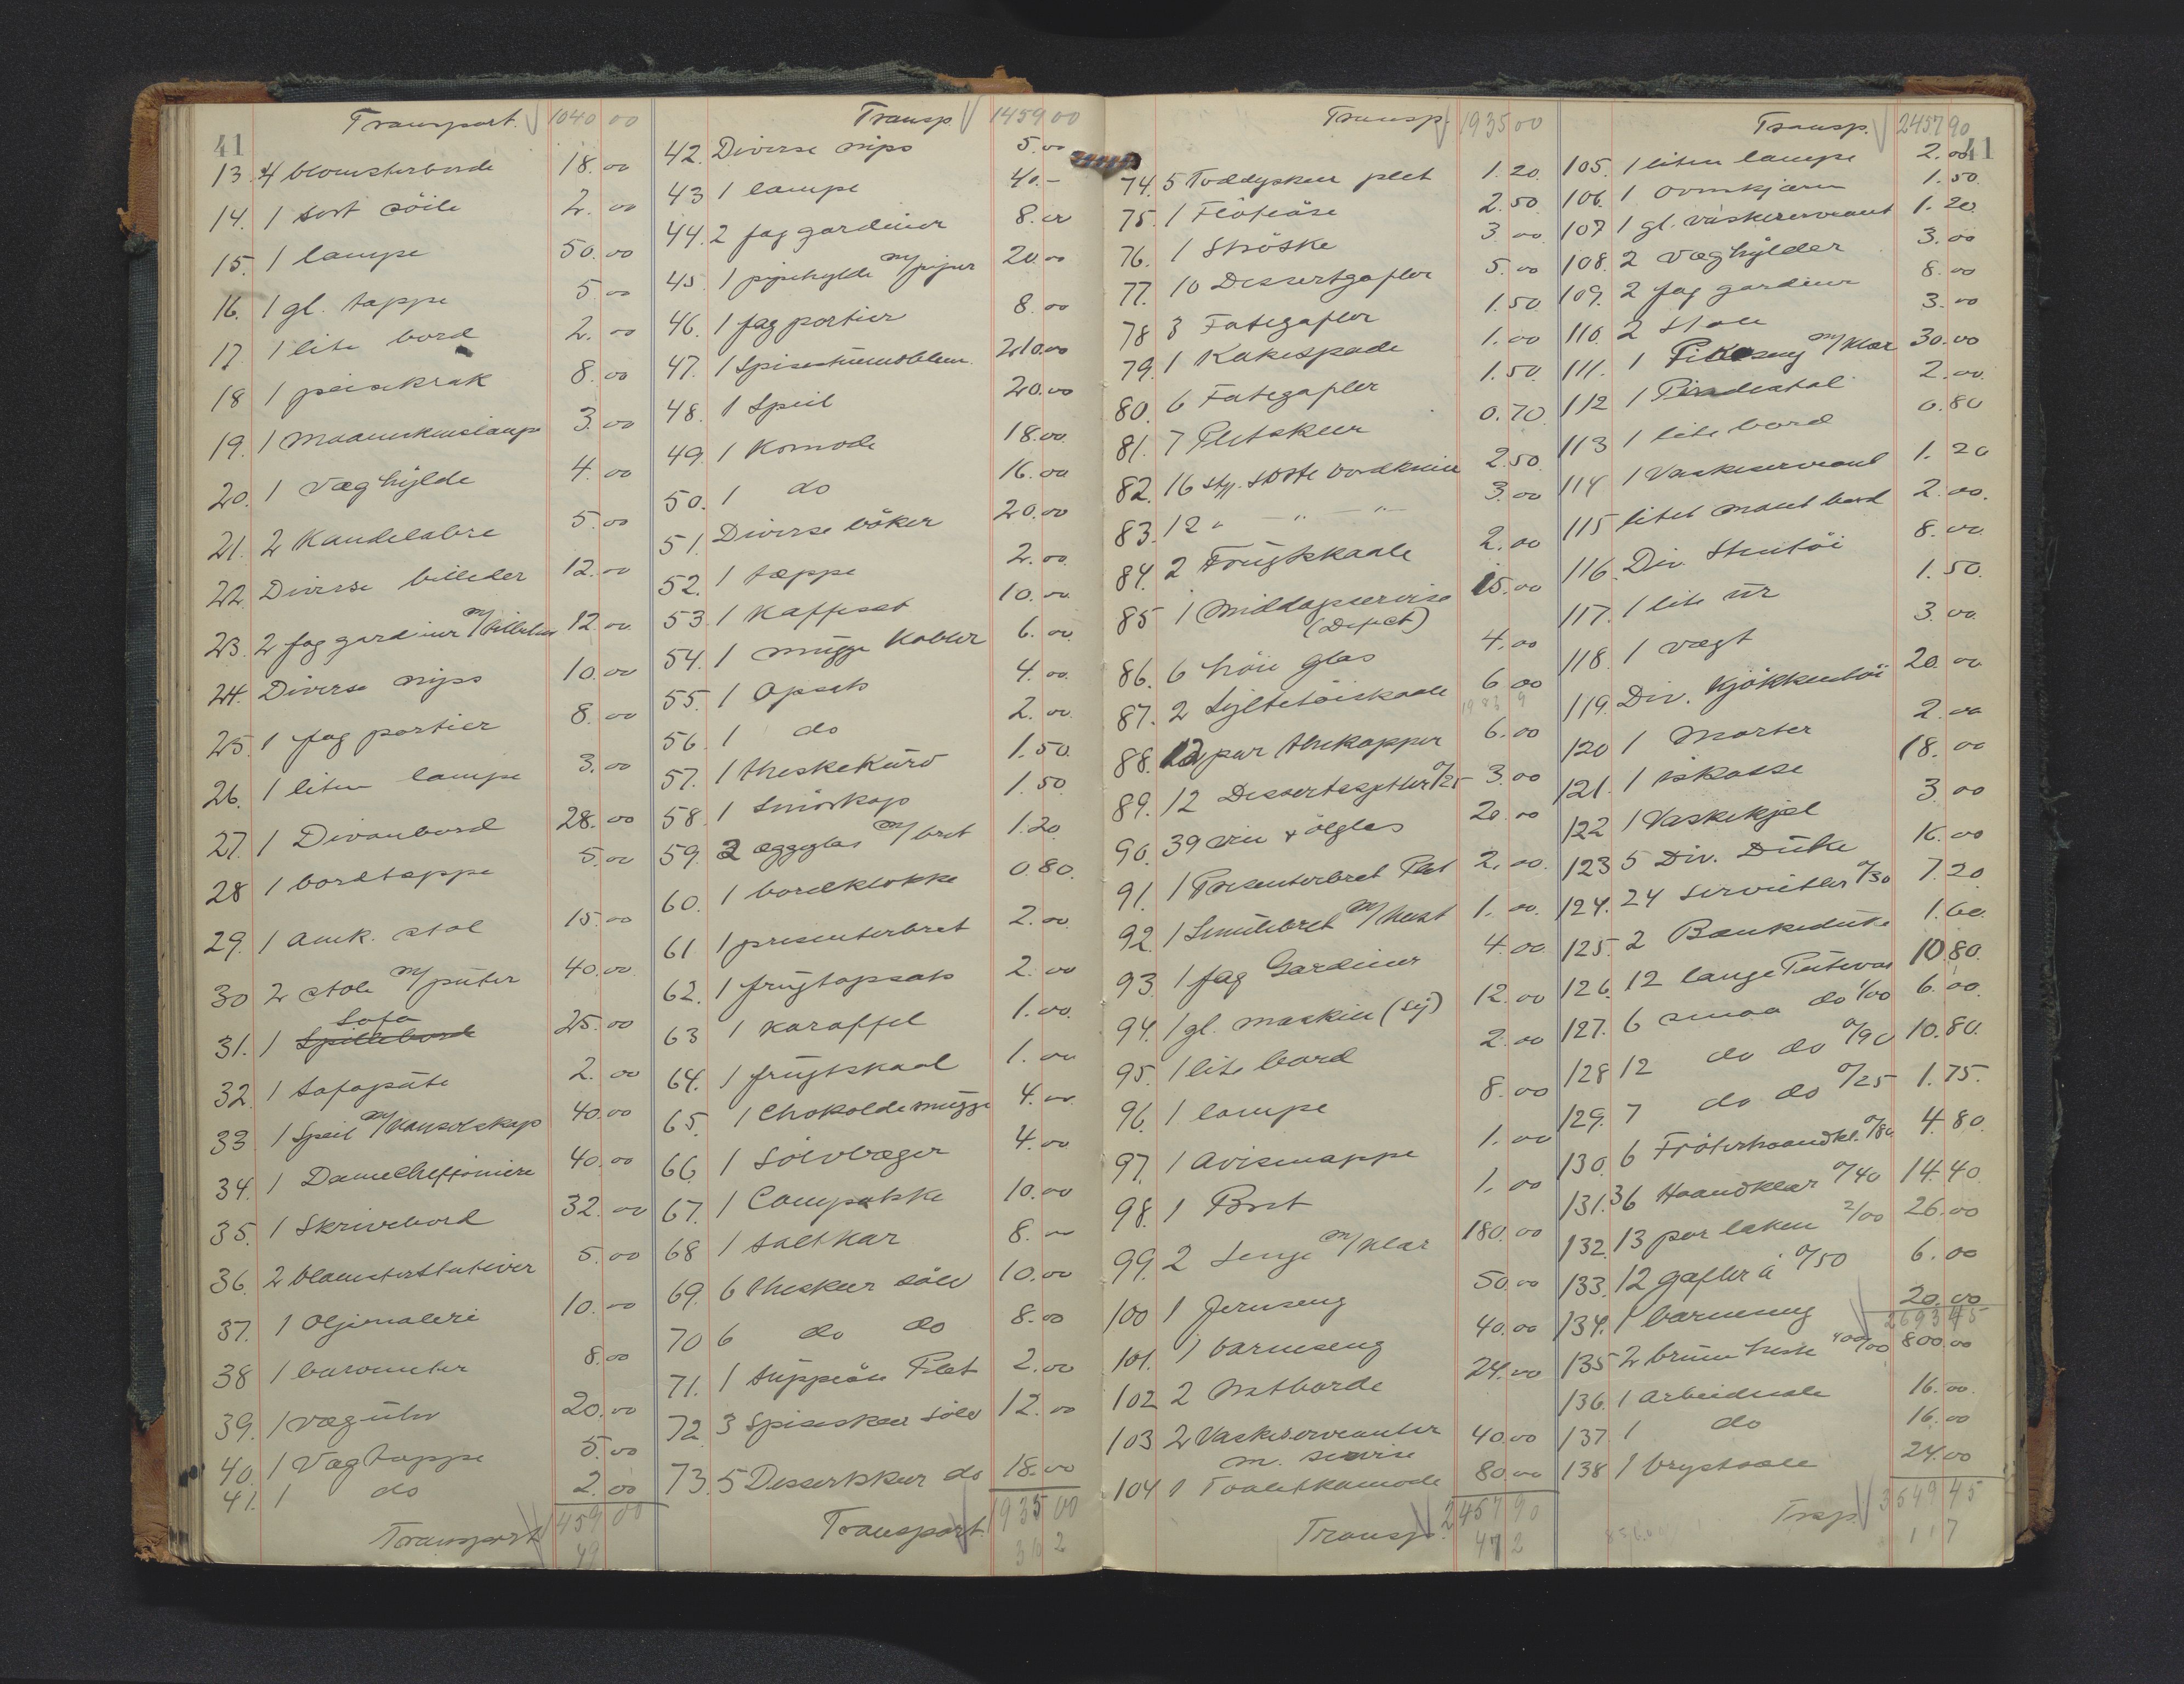 Transport. 1040 00
41
13. 4 blomsterborde 18.00
14. 1 sort söile 2.00
15. 1 lampe 50.00
16. 1 gl. tæppe 5.00
17. 1 lite bord 2.00
18 1 peiskrak 8.00
19. 1 Maaneskinslampe 3.00
20. 1 Væghylde 4.00
21. 2 Kandelabre 5.00
22. Diverse billeder 12.00
23. 2 fag gardiner m/tilbehør 12.00
24. Diverse nips 10.00
25. 1 fag portier 8.00
26. 1 liten lampe 3.00
27. 1 Divanbord 28.00
28 1 bordtæppe 5.00
29. 1 amk. stol 15.00
30 2 stole m/puter 40.00
Sofa
31. 1 Spillebord 25.00
32. 1 sofapute 2.00
33. 1 Speil m/Konsolskap 40.00
34. 1 Damecheffoniere 40.00
35. 1 Skrivebord 32.00
36. 2 blomsterstativer 5.00
37. 1 Oljemaleri 10.00
38 1 barometer 8.00
39. 1 væguhr 20.00
40. 1 Vægtæppe 5.00
41. 1 do 2.00
Transport 1459 00
49
Transp. 1459 00
42. Diverse nips 5.00
43 1 lampe 40.-
44. 2 fag gardiner 8.00
45. 1 pipehylde m/piper 20.00
46. 1 fag portier 8.00
47. 1 Spisestuemøblem. 210.00
48. 1 Speil 20.00
49. 1 Komode 18.00
50. 1 do 16.00
51. Diverse böker 20.00
52. 1 tæppe 2.00
53. 1 Kaffesæt 10.00
54. 1 mugge Kobber 6.00
55. 1 Opsats 4.00
56. 1 do 2.00
57. 1 theskekurv 1.50
58. 1 Smörkop 1.50
59. 2 eggeglas m/bret 1.20
60. 1 bordklokke 0.80
61 1 presenterbret 2.00
62. 1 frugtopsats 2.00
63 1 Karaffel 1.00
64. 1 frugtskaal 1.00
65. 1 Chokolademugge 4.00
66. 1 Sölvbæger 4.00
67. 1 Compotske 10.00
68 1 saltkar 8.00
69. 6 theskeer sölv 10.00
70 6 do do 8.00
71. 1 suppeöse Plet 2.00
72. 3 Spiseskeer sölv 12.00
73. 5 Dessertskeer do 18.00
Transport. 1935 00
302
Transp. 1935 00
74. 5 Toddyskeer plet 1.20
75. 1 Flöteöse 2.50
76. 1 Ströske 3.00
77. 10 Dessertgafler 5.00
78 3 Fategafler 1.50
79. 1 Kakespade 1.00
80. 6 Fategafler 1.50
81. 7 Pletskeer 0.70
82. 16 sty. sorte bordknive 2.50
83. 12 " — " — " — 3.00
84. 2 Frugtskaale 2.00
85 1 Middagsservise 15.00
(Defect)
86. 6 höie glas 4.00
87. 2 Syltetöiskaale 6.00
88. 12 par thekopper 6.00
89. 12 Desserttallerk 0/25 3.00
90. 39 vin & ölglas 20.00
91. 1 Presenterbret Plet 2.00
92. 1 Smulebret m/kost 1.00
93. 1 fag Gardiner 4.00
94. 1 gl. maskin (sy) 12.00
95. 1 lite bord 2.00
96. 1 lampe 8.00
97. 1 avismappe 1.00
98. 1 Bret 1.00
99. 2 Senge m/klær 180.00
100 1 Jernseng 50.00
101. 1 barneseng 40.00
102 2 Natborde 24.00
103 2 Vaskeservanter 40.00
m. servise
104 1 Toaletkomode 80.00
Transp. 2457 90
472
Transp. 2457 90
41
105. 1 liten lampe 2.00
106. 1 ovnskjærm 1.50
107 1 gl. vaskeservant 1.20
108. 2 Væghylder 3.00
109. 2 fag gardiner 8.00
110. 2 Stole 3.00
111. 1 Pikeseng m/klær 30.00
112 1 Pindestol 2.00
113 1 lite bord 0.80
114 1 Vaskeservant 1.20
115 litet malet bord 2.00
116. Div. Stentöi 8.00
117. 1 lite ur 1.50
118. 1 vægt 3.00
119. Div. Kjökkentöi 20.00
120 1 Morter 2.00
121. 1 iskasse 18.00
122 1 Vaskekjel 3.00
123 5 Div. Duke 16.00
124. 24 servietter 0/30 7.20
125. 2 Bankeduke 1.60
126. 12 lange Putevar 10.80
127. 6 smaa do 1/00 6.00
128 12 do do 0/90 10.80
129. 7 do do 0/25 1.75
130. 6 Fröterhaandkl. 0/80 4.80
131. 36 Haandklær 0/40 14.40
132. 13 par laken 2/00 26.00
133. 12 gafler á 0/50 6.00
134. 1 barneseng 20.00
2693 45
135 2 brune heste 400/00 800.00
136. 1 arbeidssele 16.00
137. 1 do 16.00
138 1 brystsele 24.00
Trsp. 3549 45
117